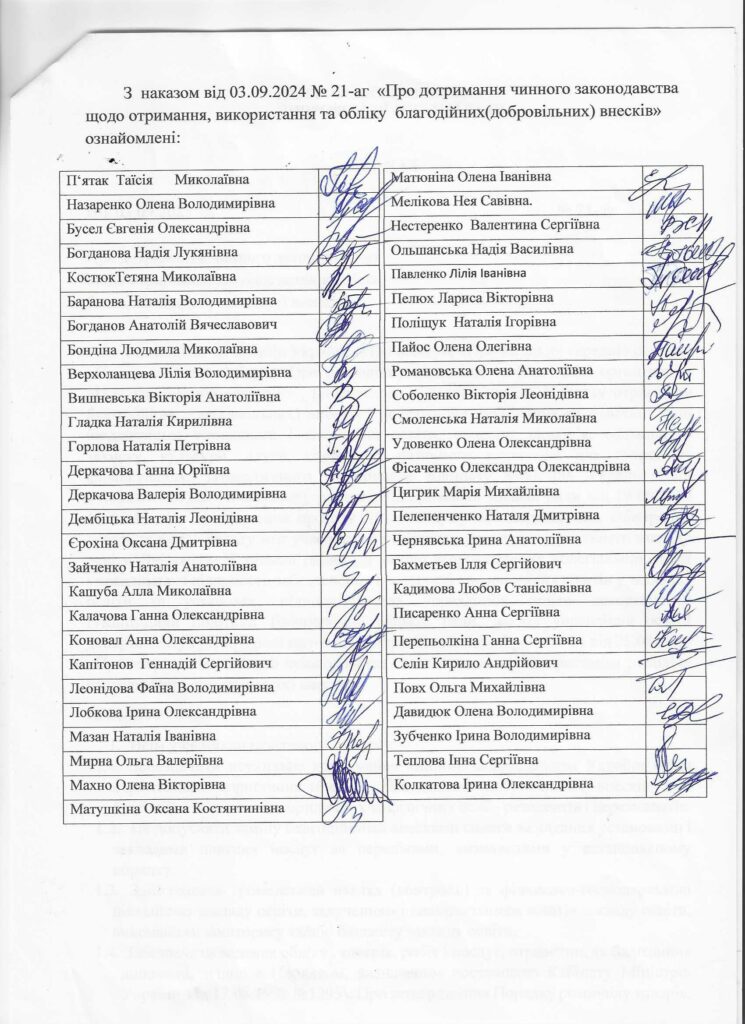 З наказом від 03.09.2024 № 21-аг «Про дотримання чинного законодавства
щодо отримання, використання та обліку благодійних(добровільних) внесків»
ознайомлені:
П‘ятак Таїсія Миколаївна
Назаренко Олена Володимирівна
Бусел Євгенія Олександрівна
Богданова Надія Лукянівна
КостюкТетяна Миколаївна
Баранова Наталія Володимирівна
Богданов Анатолій Вячеславович
Бондіна Людмила Миколаївна
Верхоланцева Лілія Володимирівна
Вишневська Вікторія Анатоліївна
Гладка Наталія Кирилівна
Горлова Наталія Петрівна
Деркачова Ганна Юріївна
Деркачова Валерія Володимирівна
Дембіцька Наталія Леонідівна
Єрохіна Оксана Дмитрівна
Зайченко Наталія Анатоліївна
Кашуба Алла Миколаївна
Калачова Ганна Олександрівна
Коновал Анна Олександрівна
Капітонов Геннадій Сергійович
Леонідова Фаїна Володимирівна
Лобкова Ірина Олександрівна
Мазан Наталія Іванівна
Мирна Ольга Валеріївна
Махно Олена Вікторівна
Матушкіна Оксана Костянтинівна
Матюніна Олена Іванівна
Мелікова Нея Савівна.
Нестеренко Валентина Сергіївна
Ольшанська Надія Василівна
Павленко Лілія Іванівна
Пелюх Лариса Вікторівна
Поліщук Наталія Ігорівна
Пайос Олена Олегівна
Романовська Олена Анатоліївна
Соболенко Вікторія Леонідівна
Смоленська Наталія Миколаївна
Удовенко Олена Олександрівна
Фісаченко Олександра Олександрівна
Цигрик Марія Михайлівна
Пелепенченко Наталя Дмитрівна
Чернявська Ірина Анатоліївна
Бахметьев Ілля Сергійович
Кадимова Любов Станіславівна
Писаренко Анна Сергіївна
Перепьолкіна Ганна Сергіївна
Селін Кирило Андрійович
Повх Ольга Михайлівна
Давидюк Олена Володимирівна
Зубченко Ірина Володимирівна
Теплова Інна Сергіївна
Колкатова Ірина Олександрівна